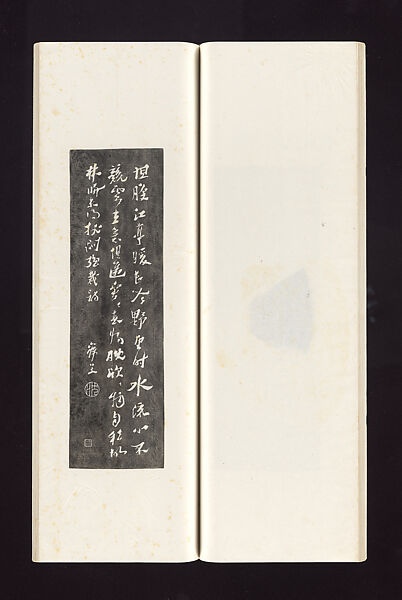 坦腹江亭暖長吟野望時水流心不
競雲在意俱遲寂〻春將晚欣〻物自私故
林歸未得排悶強裁詩